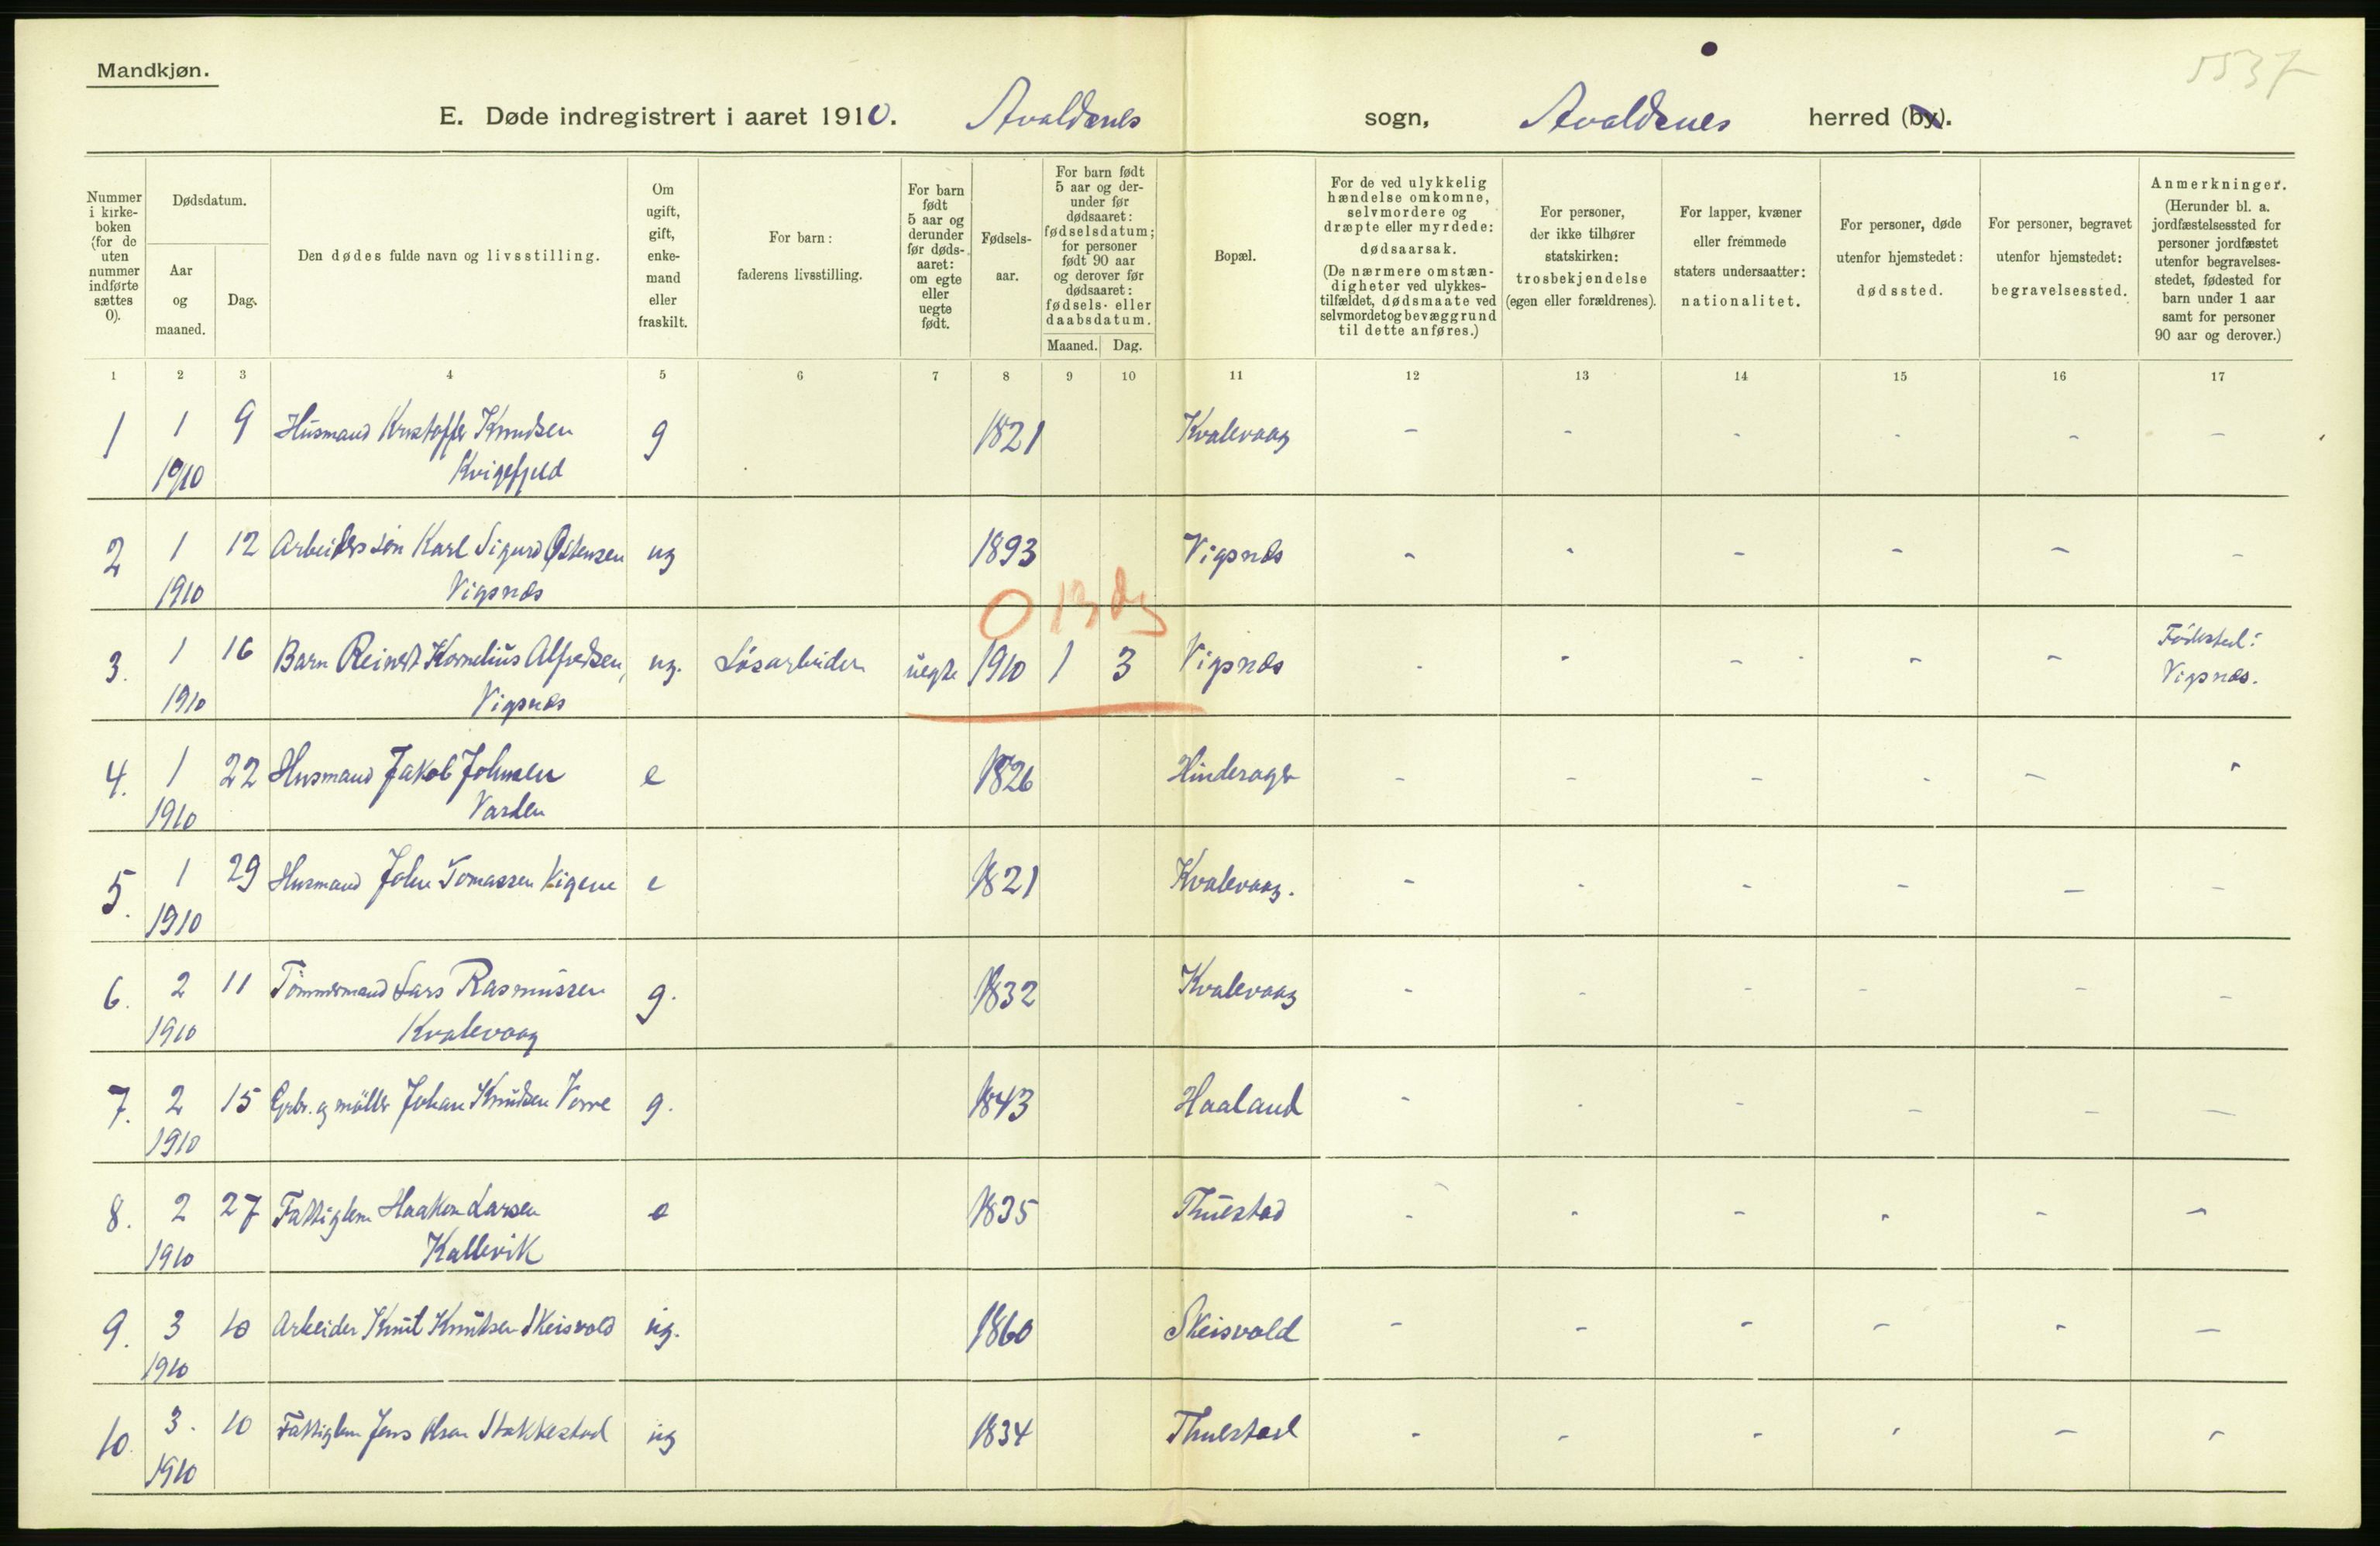 Mandkjøn.
5537
E. Døde indregistrert i aaret 1910. Avaldsnes sogn, Avaldsnes herred (by).
Nummer i kirke-boken (for de uten nummer indførte sættes 0).
Dødsdatum.
Aar og maaned.
Dag.
Den dødes fulde navn og livsstilling.
Om ugift, gift, enke-mand eller fraskilt.
For barn: faderens livsstilling.
For barn født 5 aar og derunder før døds-aaret: om egte eller uegte født.
Fødsels-aar.
For barn født 5 aar og der-under før dødsaaret: fødselsdatum; for personer født 90 aar og derover før dødsaaret: fødsels- eller daabsdatum.
Maaned. Dag.
Bopæl.
For de ved ulykkelig hændelse omkomne, selvmordere og dræpte eller myrdede: dødsaarsak. (De nærmere omstæn-digheter ved ulykkes-tilfældet, dødsmaate ved selvmordet og bevæggrund til dette anføres.)
For personer, der ikke tilhører statskirken: trosbekjendelse (egen eller forældrenes).
For lapper, kvæner eller fremmede staters undersaatter: nationalitet.
For personer, døde utenfor hjemstedet: dødssted.
For personer, begravet utenfor hjemstedet: begravelsessted.
Anmerkninger. (Herunder bl. a. jordfæstelsessted for personer jordfæstet utenfor begravelses-stedet, fødested for barn under 1 aar samt for personer 90 aar og derover.)
1 2 3 4 5 6 7 8 9 10 11 12 13 14 15 16 17
1 1 9 Husmand Kristoffer Knudsen g 1821 Kvalevaag - - - - - -
1910 Kvigefjeld
2 1 12 Arbeiders søn Karl Sigurd Østensen ug 1893 Vigsnæs - - - - - -
1910 Vigsnæs
0 13 dg
3. 1 16 Barn Reinert Kornelius Alfredsen, ug. Løsarbeider uegte 1910 1 3 Vigsnæs - - - - - Fødested:
1910 Vigsnæs Vigsnæs.
4. 1 22 Husmand Jakob Johnsen e 1826 Hinderager - - - - - -
1910 Varden
5. 1 29 Husmand John Tomassen Vigene e 1821 Kvalevaag. - - - - - -
1910
6. 2 11 Tømmermand Lars Rasmussen g. 1832 Kvalevaag - - - - - -
1910 Kvalevaag
7. 2 15 Grbr. og møller Johan Knudsen Vorre g. 1843 Haaland - - - - - -
1910
8. 2 27 Fattiglem Haakon Larsen e 1835 Thuestad - - - - - -
1910 Kallevik
9. 3 10 Arbeider Knut Knutsen Skeisvold ug. 1860 Skeisvold - - - - - -
1910
10. 3. 10 Fattiglem Jens Olsen Stakkestad ug 1834 Thuestad - - - - - -
1910